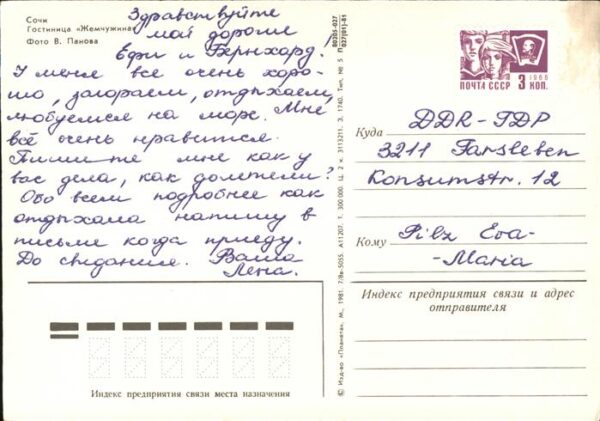 Сочи
Гостиница «Жемчужина»
Фото В. Панова
Здравствуйте
мои дорогие
Ефи и Бернхард.
У меня все очень хоро-
шо, загораем, отдыхаем,
любуемся на море. Мне
всё очень нравится.
Пишите мне как у
вас дела, как долетели?
Обо всем подробнее как
отдыхала напишу в
письме когда приеду.
До свидания. Ваша
Лена.
Индекс предприятия связи места назначения
© Изд-во «Планета». М., 1981. 7/8в-5055. А11207. 1. 300 000. Ц. 2 к. 3113211. З. 1740. Тип. № 5 Л
80205-027
027(01)-81
1966
ПОЧТА СССР 3 КОП.
Куда DDR-ГДР
3211 Farsleben
Konsumstr. 12
Кому Pilz Eva-
-Maria
Индекс предприятия связи и адрес
отправителя